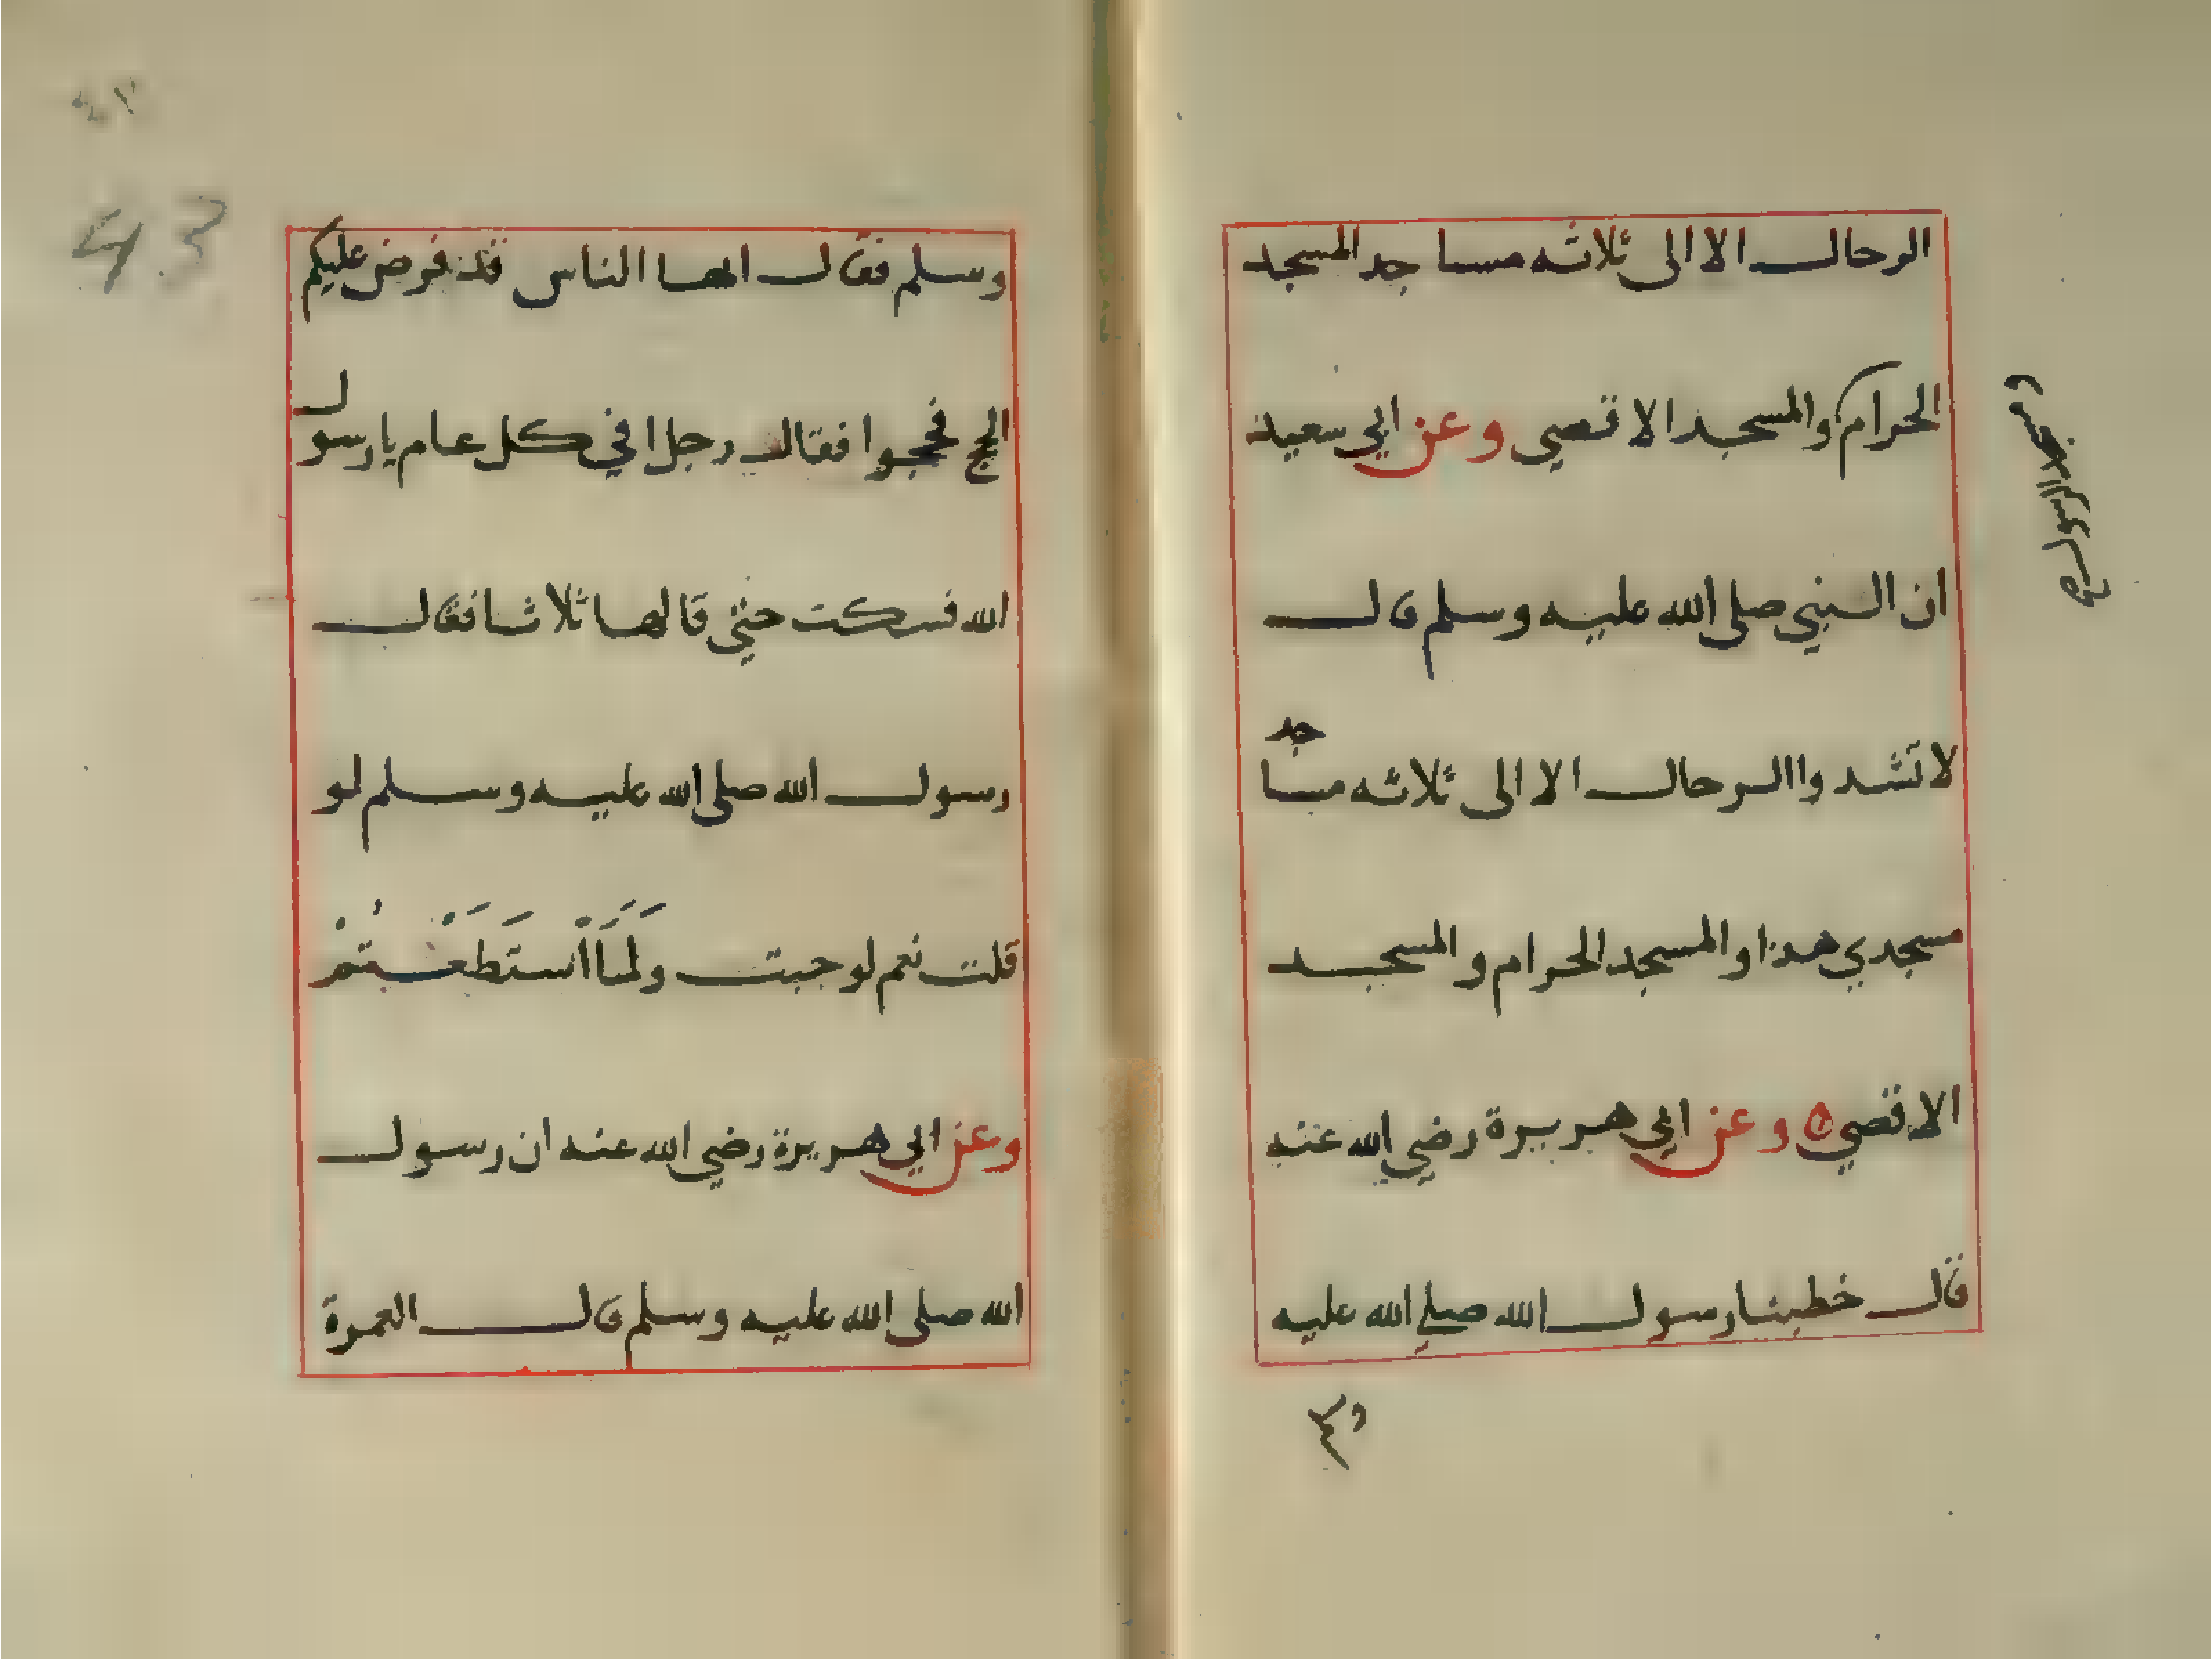 الرحال الا الى ثلاثه مساجد المسجد
الحرام والمسجد الاقصى وعن ابي سعيد
ان النبي صلى الله عليه وسلم قال
لا تشدوا الرحال الا الى ثلاثه مساجد
مسجدي هذا والمسجد الحرام والمسجد
الاقصي ه وعن ابي هريرة رضي الله عنه
قال خطبنا رسول الله صلي الله عليه
ومسجد الرسول صح
وسلم فقال ايها الناس قد فرض عليكم
الحج فحجوا فقال رجل افي كل عام يا رسول
الله فسكت حتي قالها ثلاثا فقال
رسول الله صلى الله عليه وسلم لو
قلت نعم لوجبت ولما استطعتم
وعن ابي هريرة رضي الله عنه ان رسول
الله صلى الله عليه وسلم قال العمرة
43